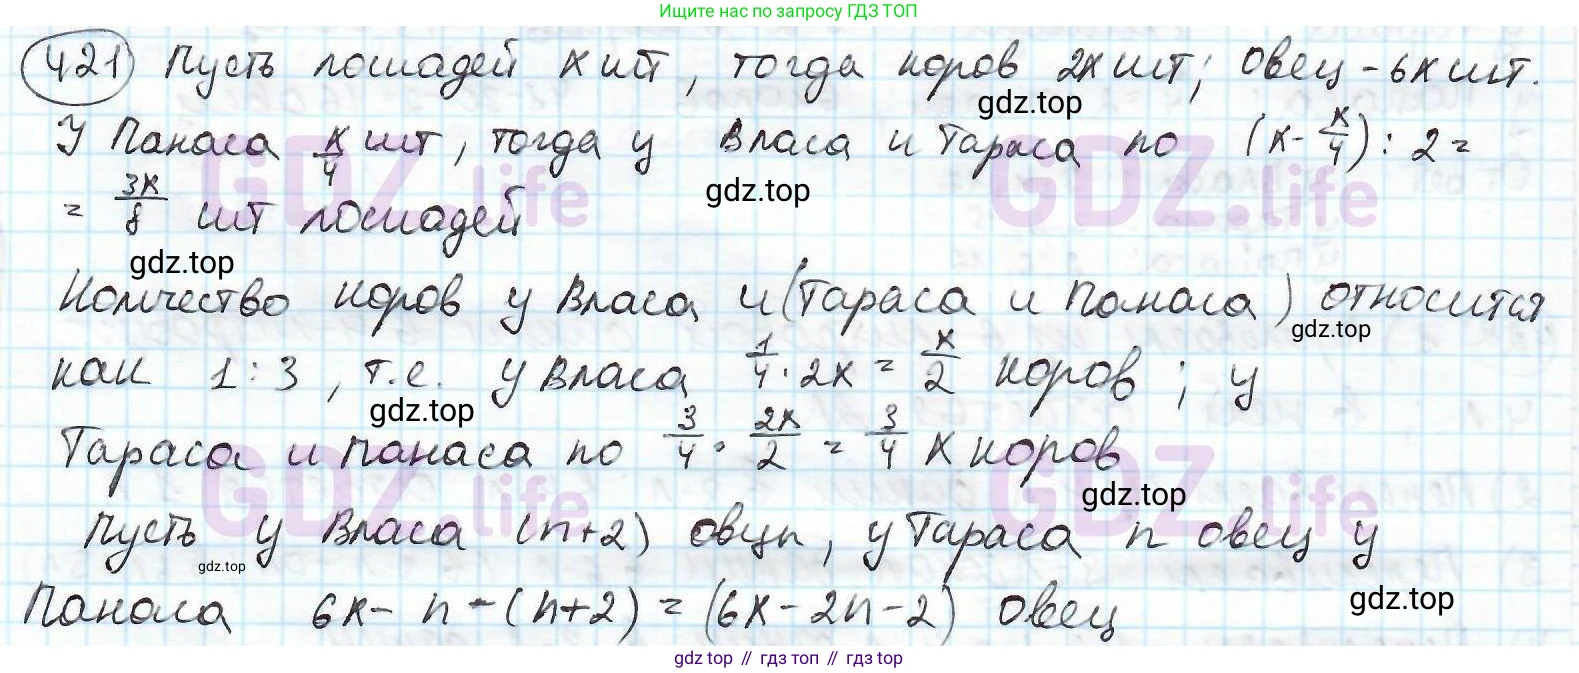 Ищите нас по запросу ГДЗ ТОП
421 Пусть лошадей x шт, тогда коров 2x шт; овец - 6x шт.
gdz.top
У Панаса x/4 шт, тогда у Власа и Тараса по (x - x/4) : 2 =
GDZ.life GDZ.life
gdz.top
= 3x/8 шт лошадей
gdz.top
Количество коров у Власа и (Тараса и Панаса) относится
gdz.top
как 1 : 3, т.е. у Власа 1/4 · 2x = x/2 коров; у
gdz.top
Тараса и Панаса по 3/4 · 2x/2 = 3/4 x коров
GDZ.life GDZ.life
gdz.top
Пусть у Власа (n+2) овцы, у Тараса n овец у
gdz.top
Панаса 6x - n - (n+2) = (6x - 2n - 2) овец
gdz.top
gdz top // гдз топ // гдз top